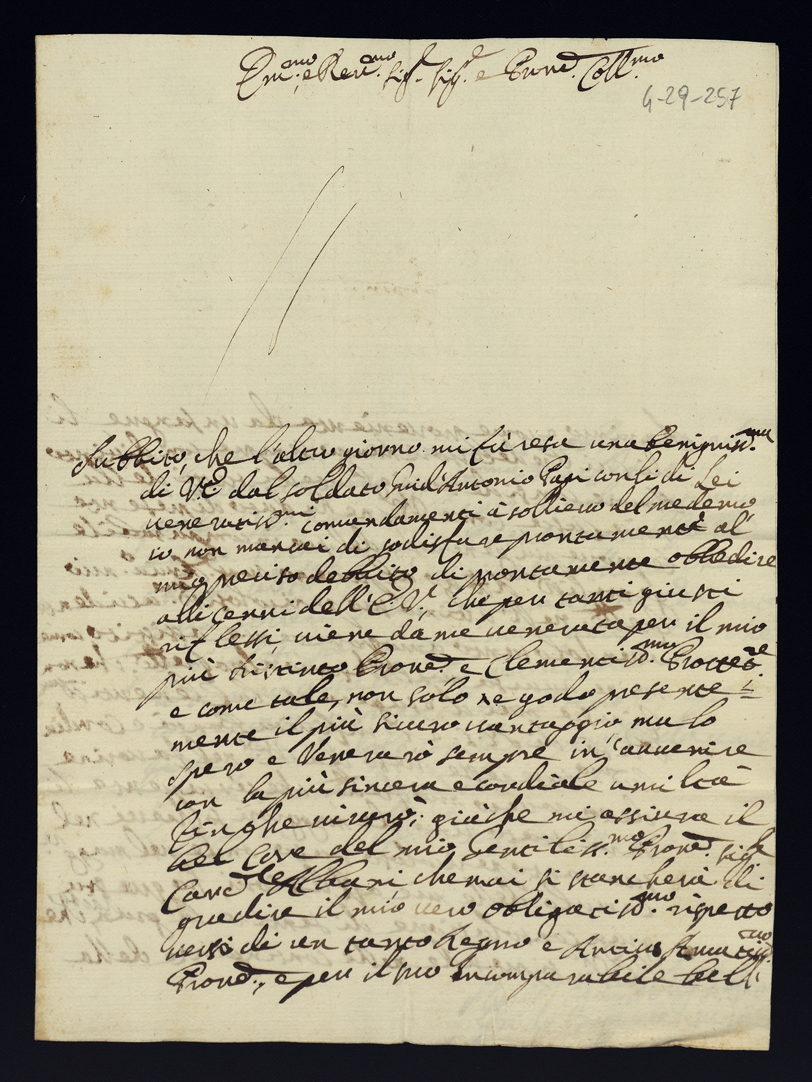 Em.mo e Rev.mo Sig.r Sig.r e Pron.e Coll.mo
4-29-257
Subbito, che l'altro giorno mi fù resa una benigniss.ma
di V.E. dal soldato Guid'Antonio Papi con li di Lei
veneratiss.mi comandamenti à sollievo del medemo
io non mancai di sodisfare prontamente al
mio preciso debbito di prontamente obbedire
alli cenni dell'E.V. che per tanti giusti
riflessi, viene dà me venerata per il mio
più distinto Pron.e e Clementiss.mo Prottet.re
e come tale, non solo ne godo presente-
mente il più sincero vantaggio, ma lo
spero e venerarò sempre in'avvenire
con la più sincera e cordiale umiltà
finche vivrò; giàche mi assicura il
bel Core del mio Gentiliss.mo Pron.e Sig.r
Card.le Albani che mai si stancherà di
gradire il mio vero obligatiss.mo rispetto
verso di un tanto Degno e Antico Amatiss.mo
Pron.e, e per il suo incomparabile bell